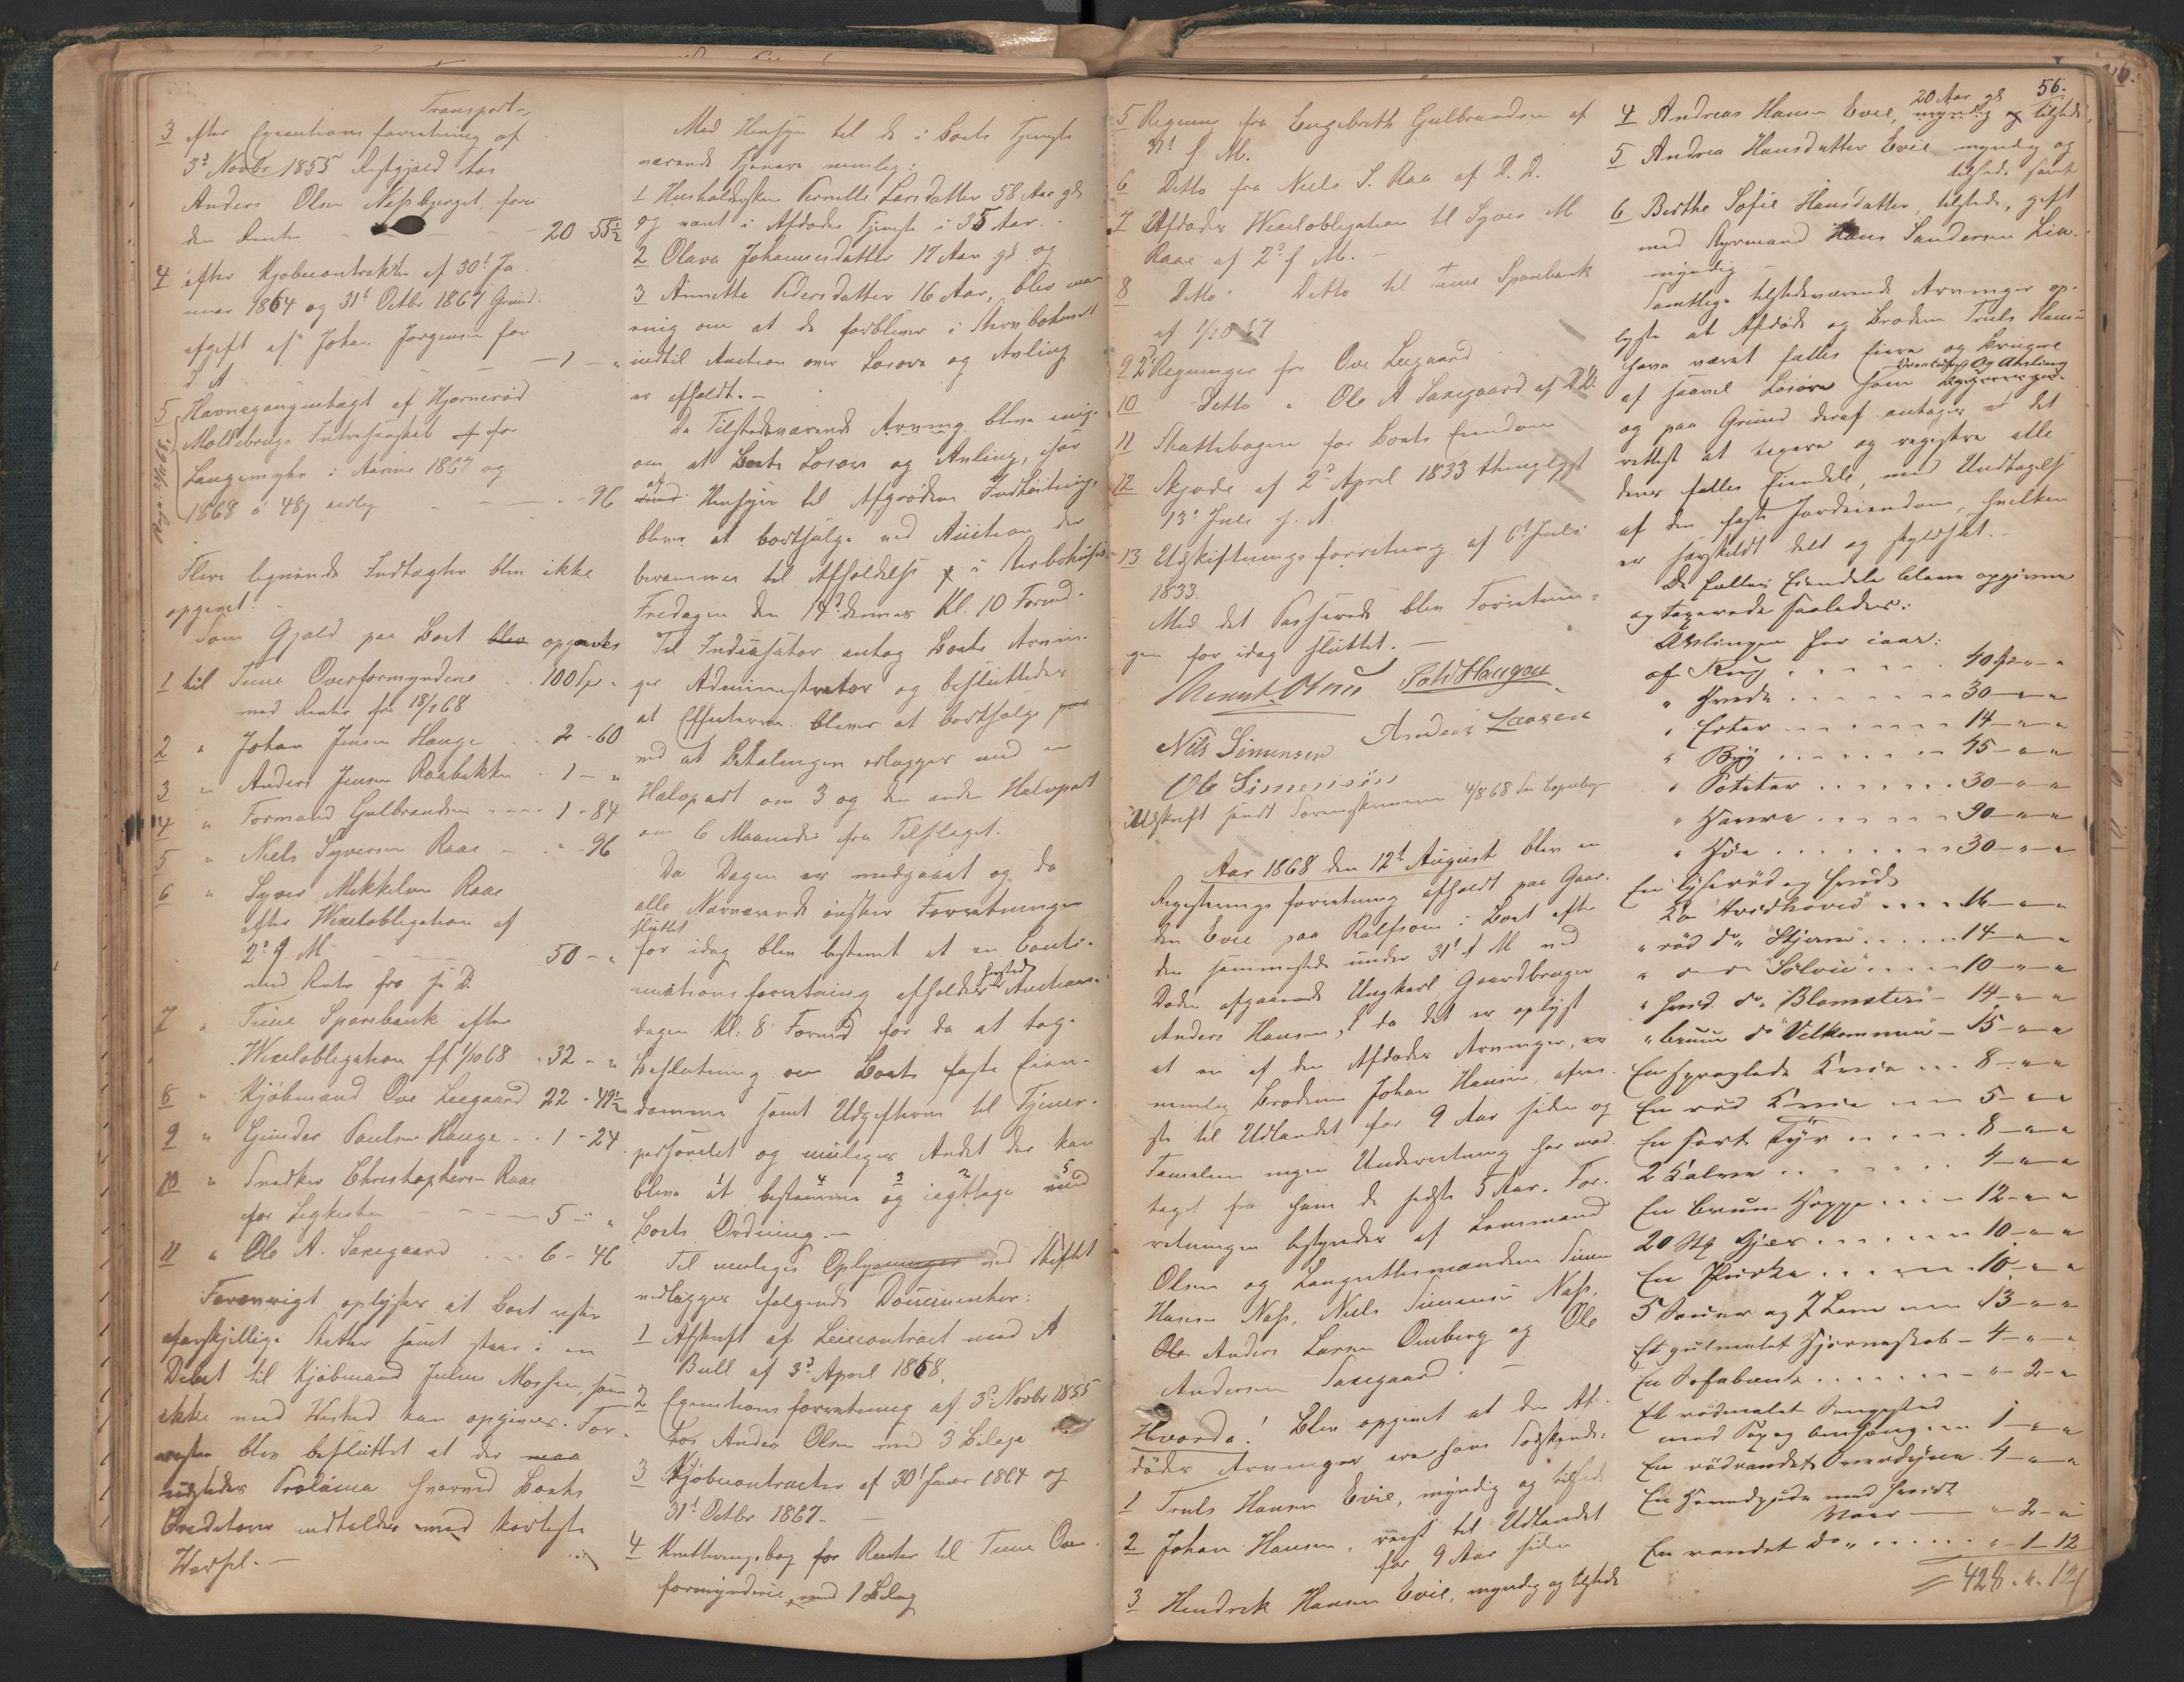 Transport
3 efter Executionsforretning af
3d Novbr 1855 Restgjæld hos
Anders Olsen Næssbjerget foru
den Renter - 20 55½
4 efter Kjøbecontrakter af 30t Ja
nuar 1864 og 31t Octbr 1867 Grund
afgift af Johan Jørgensen for
d A - 1 - "
5 Havnegangsindtægt af Hjørnerød
Møllebrugs Interessentskab for
Langemyhr i Aarene 1867 og
1868 á 48ß aarlig - " - 96
Flere lignende Indtægter blev ikke
opgivet.
Som Gjæld paa Boet blev opgaves
1 til Tune Overformynderie 100 Sp "
med Renter fra 18/1 68
2 " Johan Jensen Hauge 2 - 60
3 " Anders Jensen Raabakke 1 - "
4 " Formand Gulbrandsen 1 - 84
5 " Niels Syversen Raae " - 96
6 " Syver Mikkelsen Raae
efter Wexelobligation af
2d f M 50 - "
med Rente fra s. D.
7 " Tune Sparebank efter
Wexelobligation af 1/10 68 32 - "
8 " Kjøbmand Ove Leegaard 22 - 49½
9 " Gunder Paulsen Hauge 1 - 24
10 " Snedker Christophersen Raae
for Ligkiste 5 - "
11 " Ole A. Saxegaard 6 - 46
Forøvrigt oplystes at Boet rester
forskjellige Skatter samt staar i en
Debet til Kjøbmand Julius Mossen, som
ikke med Vished kan opgives. For
resten blev besluttet at der maa
udstedes Proclama hvorved Boets
Creditorer indkaldes med korteste
Varsel. -
Med Hensyn til de i Boets Tjeneste
værende Tjenere nemlig:
1 Husholdersken Pernille Larsdatter 58 Aar gl
og været i Afdødes Tjeneste i 35 Aar.
2 Olava Johannesdatter 17 Aar gl og
3 Annette Pedersdatter 16 Aar, blev man
enig om at de forbliver i Sterbohuset
indtil Auction over Løsøre og Avling
er afholdt. -
De Tilstedeværende Arving. bleve enige
om at Boets Løsøre og Avling, især
af Hensyn til Afgrødens Indhøstning
bliver at bortsælge ved Auction der
berammes til Afholdelse i Sterbohuset
Fredagen den 14d dennes Kl. 10 Formd.
Til Incassator antog Boets Arvin-
ger Administrator og besluttedes
at Effecterne bliver at bortsælge paa
ved at Betalingen erlægges med en
Halvpart om 3 og den anden Halvpart
om 6 Maaneder fra Tilslaget.
Da Dagen er medgaaet og da
alle Nærværende ønsker Forretningen
sluttet
for idag blev bestemt at en Conti-
nuationsforretning afholdes førstk Auctions-
dagen Kl: 8 Formd for da at tage
Beslutning om Boets faste Eien-
domme samt Udgifterne til Tjener-
personalet og muligens Andet der kan
blive at bestemme og iagttage ved
Boets Ordning. -
Til muligens Oplysninger ved Skiftet
vedlægges følgende Documenter:
1 Afskrift af Leiecontract med A
Bull af 3d April 1868.
2 Executionsforretning af 3d Novbr 1855
hos Anders Olsen med 3 Bilage
3 Kjøbecontracter af 30t Januar 1864 og
31t Octbr 1867. -
4 Kvitteringsbog for Renter til Tune Over-
formynderie, med 1 Bilag
5 Regning fra Engebreth Gulbrandsen af
31t f M.
6 Ditto fra Niels S. Raa af D. D.
7 Afdødes Wexelobligation til Syver M
Raae af 2d f M. -
8 Ditto Ditto til Tune Sparebank
af 1/10 67
9 2d Regninger fra Ove Leegaard
10 Ditto " Ole A Saxegaard af D.D.
11 Skattebogen for Boets Eiendom
12 Skjøde af 2d April 1833 thinglyst
13d Juli s. A.
13 Udskiftningsforretning af 6t Juli
1833.
Med det Passerede blev Forretnin-
gen for idag sluttet. -
Nils Simensen Anders Larsen
Ole Simensøn
Udskrift sendt Sorenskriveren 4/8 68
Aar 1868 den 12t August blev en
Registreringsforretning afholdt paa Gaar-
den Evie paa Rolfsøen i Boet efter
den sammesteds under 31t f M ved
Døden afgaaende Ungkarl Gaardbruger
Anders Hansen, da det er oplyst
at en af den Afdødes Arvinger,
nemlig Broderen Johan Hansen, afrei-
ste til Udlandet for 9 Aar siden og
Familien ingen Underretning har mod-
taget fra ham de sidste 5 Aar. For-
retningen bestyredes af Lensmand
Olsen og Laugrettesmændene Simen
Hansen Næss, Niels Simensen Næss,
Ole Anders Larsen Omberg og Ole
Andersen Saxegaard. -
Hvorda! Blev opgivet at den Af-
dødes Arvinger ere hans Sødskende:
1 Truls Hansen Evie, myndig og tilstede
2 Johan Hansen, reist til Udlandet
for 9 Aar siden
3 Hendrik Hansen Evie, myndig og tilstede
56.
20 Aar gl
4 Andreas Hansen Evie, myndig og tilstede,
5 Andrea Hansdatter Evie myndig og
tilstede samt
6 Berthe Sofie Hansdatter, tilstede, gift
med Styrmand Hans Sandersen Lia.
myndig -
Samtlige tilstedeværende Arvinger op-
lyste at Afdøde og Broderen Truls Hansen
have været fælles Eiere og Brugere
af saavel Løsøre som Besætning Og Afvling
og paa Grund deraf antages det
rettest at taxere og registre alle
deres fælles Eiendele, med Undtagelse
af den faste Jordeiendom, hvilken
er særskildt delt og skyldsat. -
De fælles Eiendele bleve opgivne
og taxerede saaledes:
Avlingen for iaar:
af Rug 40 Sp " - "
" Hvede 30 - " - "
" Erter 14 - " - "
" Byg 45 - " - "
" Poteter 30 - " - "
" Havre 90 - " - "
" Høe 30 - " - "
En lyserød og hvid
Ko Hvidhoved 16 - " - "
" rød do "Stjerne" 14 - " - "
" " "Sølvie" 10 - " - "
" hvid do "Blomster" 14 - " - "
" bruun do Velkommen 15 - " - "
En spraglede Qvie 8 - " - "
En rød Qvie 5 - " - "
En sort Tyr 8 - " - "
2 Kalve 4 - " - "
En bruun Hoppe 12 - " - "
20 Stk Gjæs 10 - " - "
En Purke 10 - " - "
5 Souer og 7 Lam 13 - " - "
Et gulmalet Hjørneskab - 4 - " - "
En Sofabænk " - 2 - "
Et rødmalet Sengested
med Top og Omhæng 1 - " - "
En rødrandet Overdyne 4 - " - "
En Hovedpude med hvidt
Vaar " - 2 - "
En randet do " - 1 - 12
428 . 4 . 12